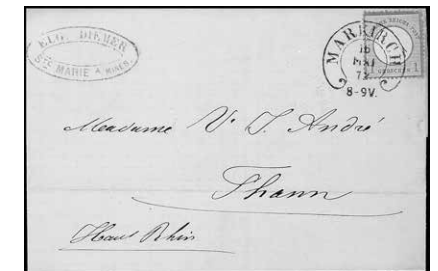 EUG. DIEMER
STE MARIE A. MINES.
MARKIRCH
16
MAI
72
8-9V.
1 GROSCHEN 1
Madame Ve J. André
Thann
Haut Rhin